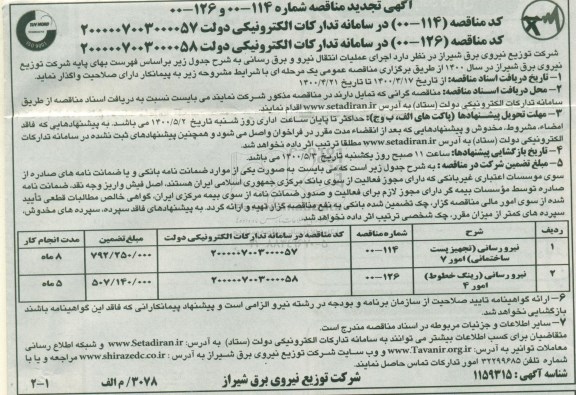 آگهی تجدید مناقصه شماره ۱۱۴-۰۰ و ۱۲۶-۰۰
کد مناقصه (۱۱۴-۰۰) در سامانه تدارکات الکترونیکی دولت ۲۰۰۰۰۰۷۰۰۳۰۰۰۰۵۷
کد مناقصه (۱۲۶-۰۰) در سامانه تدارکات الکترونیکی دولت ۲۰۰۰۰۰۷۰۰۳۰۰۰۰۵۸
شرکت توزیع نیروی برق شیراز در نظر دارد اجرای عملیات انتقال نیرو و برق رسانی به شرح جدول زیر براساس فهرست بهای پایه شرکت توزیع
نیروی برق شیراز در سال ۱۴۰۰ از طریق برگزاری مناقصه عمومی یک مرحله ای با شرایط مشروحه زیر به پیمانکار دارای صلاحیت واگذار نماید.
۱- تاریخ دریافت اسناد مناقصه: از تاریخ ۱۴۰۰/۳/۱۷ تا تاریخ ۱۴۰۰/۴/۲۱
۲- محل دریافت اسناد مناقصه: مناقصه گرانی که تمایل دارند در مناقصه مذکور شرکت نمایند می بایست نسبت به دریافت اسناد مناقصه از طریق
سامانه تدارکات الکترونیکی دولت (ستاد) به آدرس www.setadiran.ir اقدام نمایند.
۳- مهلت تحویل پیشنهادها (پاکت های الف، ب و ج): حداکثر تا پایان ساعت اداری روز شنبه تاریخ ۱۴۰۰/۵/۲ می باشد. به پیشنهادهایی که فاقد
امضاء، مشروط، مخدوش و پیشنهادهایی که بعد از انقضاء مدت مقرر در فراخوان واصل می شود و همچنین پیشنهادهای ثبت نشده در سامانه تدارکات
الکترونیکی دولت (ستاد) به آدرس www.setadiran.ir مطلقا ترتیب اثر داده نخواهد شد.
۴- تاریخ بازگشایی پیشنهادها: ساعت ۱۱ صبح روز یکشنبه تاریخ ۱۴۰۰/۵/۳ می باشد.
۵- مبلغ تضمین شرکت در مناقصه: به شرح جدول زیر است که می بایست به صورت یکی از موارد ضمانت نامه بانکی و یا ضمانت نامه های صادره از
سوی موسسات اعتباری غیربانکی که دارای مجوز فعالیت از سوی بانک مرکزی جمهوری اسلامی ایران هستند، اصل فیش واریز وجه نقد، ضمانت نامه
صادره توسط مؤسسات بیمه گر دارای مجوز لازم برای فعالیت و صدور ضمانت نامه از سوی بیمه مرکزی ایران، گواهی خالص مطالبات قطعی تأیید
شده از سوی امور مالی مناقصه گزار، چک تضمین شده بانکی به نفع مناقصه گزار تهیه و ارائه گردد. به پیشنهادهای فاقد سپرده، سپرده های مخدوش،
سپرده های کمتر از میزان مقرر، چک شخصی ترتیب اثر داده نخواهد شد.
ردیف شرح شماره مناقصه کد مناقصه در سامانه تدارکات الکترونیکی دولت مبلغ تضمین مدت انجام کار
۱ نیرو رسانی (تجهیز پست ساختمانی) امور ۷ ۱۱۴-۰۰ ۲۰۰۰۰۰۷۰۰۳۰۰۰۰۵۷ ۷۹۲/۲۵۰/۰۰۰ ۸ ماه
۲ نیرو رسانی (رینگ خطوط) امور ۴ ۱۲۶-۰۰ ۲۰۰۰۰۰۷۰۰۳۰۰۰۰۵۸ ۵۰۷/۱۴۰/۰۰۰ ۵ ماه
۶- ارائه گواهینامه تایید صلاحیت از سازمان برنامه و بودجه در رشته نیرو الزامی است و پیشنهاد پیمانکارانی که فاقد این گواهینامه باشند
بازگشایی نخواهد شد.
۷- سایر اطلاعات و جزئیات مربوطه در اسناد مناقصه مندرج است.
متقاضیان برای کسب اطلاعات بیشتر می توانند به سامانه تدارکات الکترونیکی دولت (ستاد) به آدرس: www.Setadiran.ir و شبکه اطلاع رسانی
معاملات توانیر به آدرس: www.Tavanir.org.ir و وب سایت شرکت توزیع نیروی برق شیراز به آدرس: www.shirazedc.co.ir مراجعه و یا با
شماره تلفن ۳۲۲۹۹۶۸۵ امور تدارکات تماس حاصل نمایند.
شناسه آگهی: ۱۱۵۹۳۱۵ شرکت توزیع نیروی برق شیراز ۳۰۷۸/م الف ۲-۱